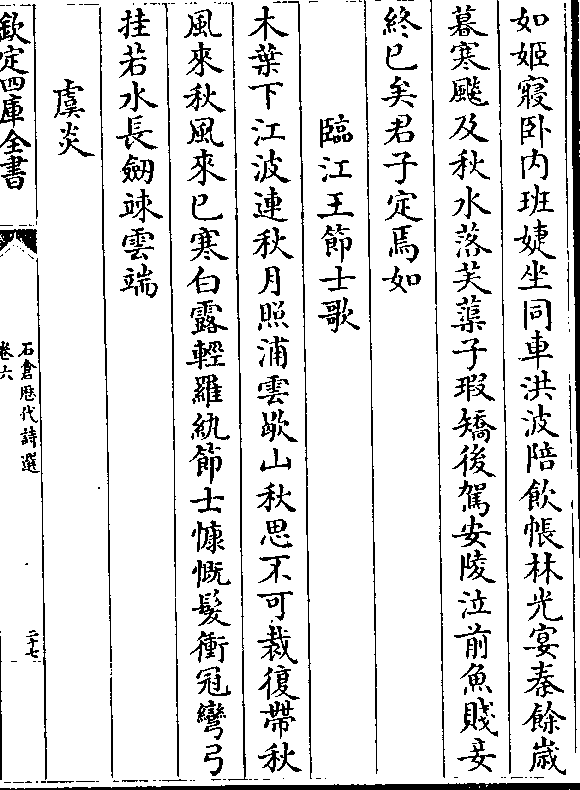 如姬寢卧内班婕坐同車洪波陪飲帳林光宴秦餘歳
暮寒飈及秋水落芙蕖子瑕矯後駕安陵泣前魚賤妾
終已矣君子定焉如
臨江王節士歌
木葉下江波連秋月照浦雲歇山秋思不可裁復帶秋
風來秋風來已寒白露輕羅紈節士慷慨髮衝冠彎弓
挂若水長劒竦雲端
虞炎
欽定四庫全書
石倉歴代詩選
卷六
二十七